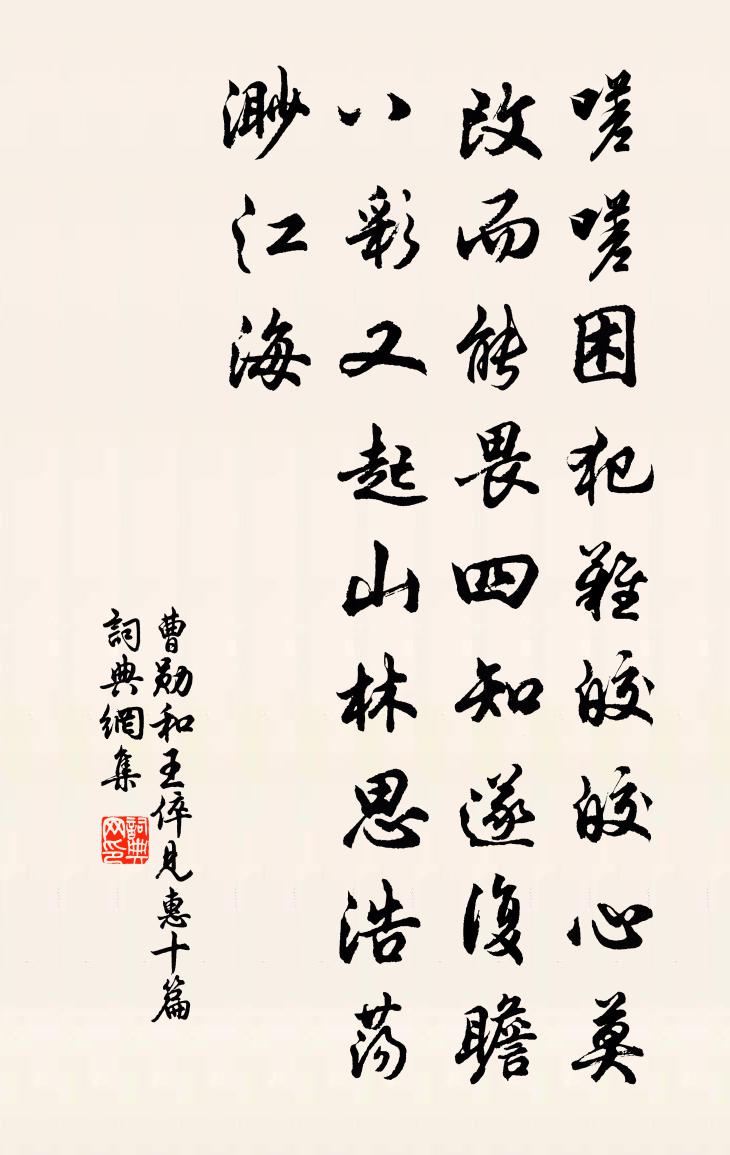 嗟嗟困犯難皎皎心莫
改而能畏四知遂復瞻
八彩又起山林思浩蕩
渺江海
曹勛和王倅見惠十篇
詞典網集
詞典
网印